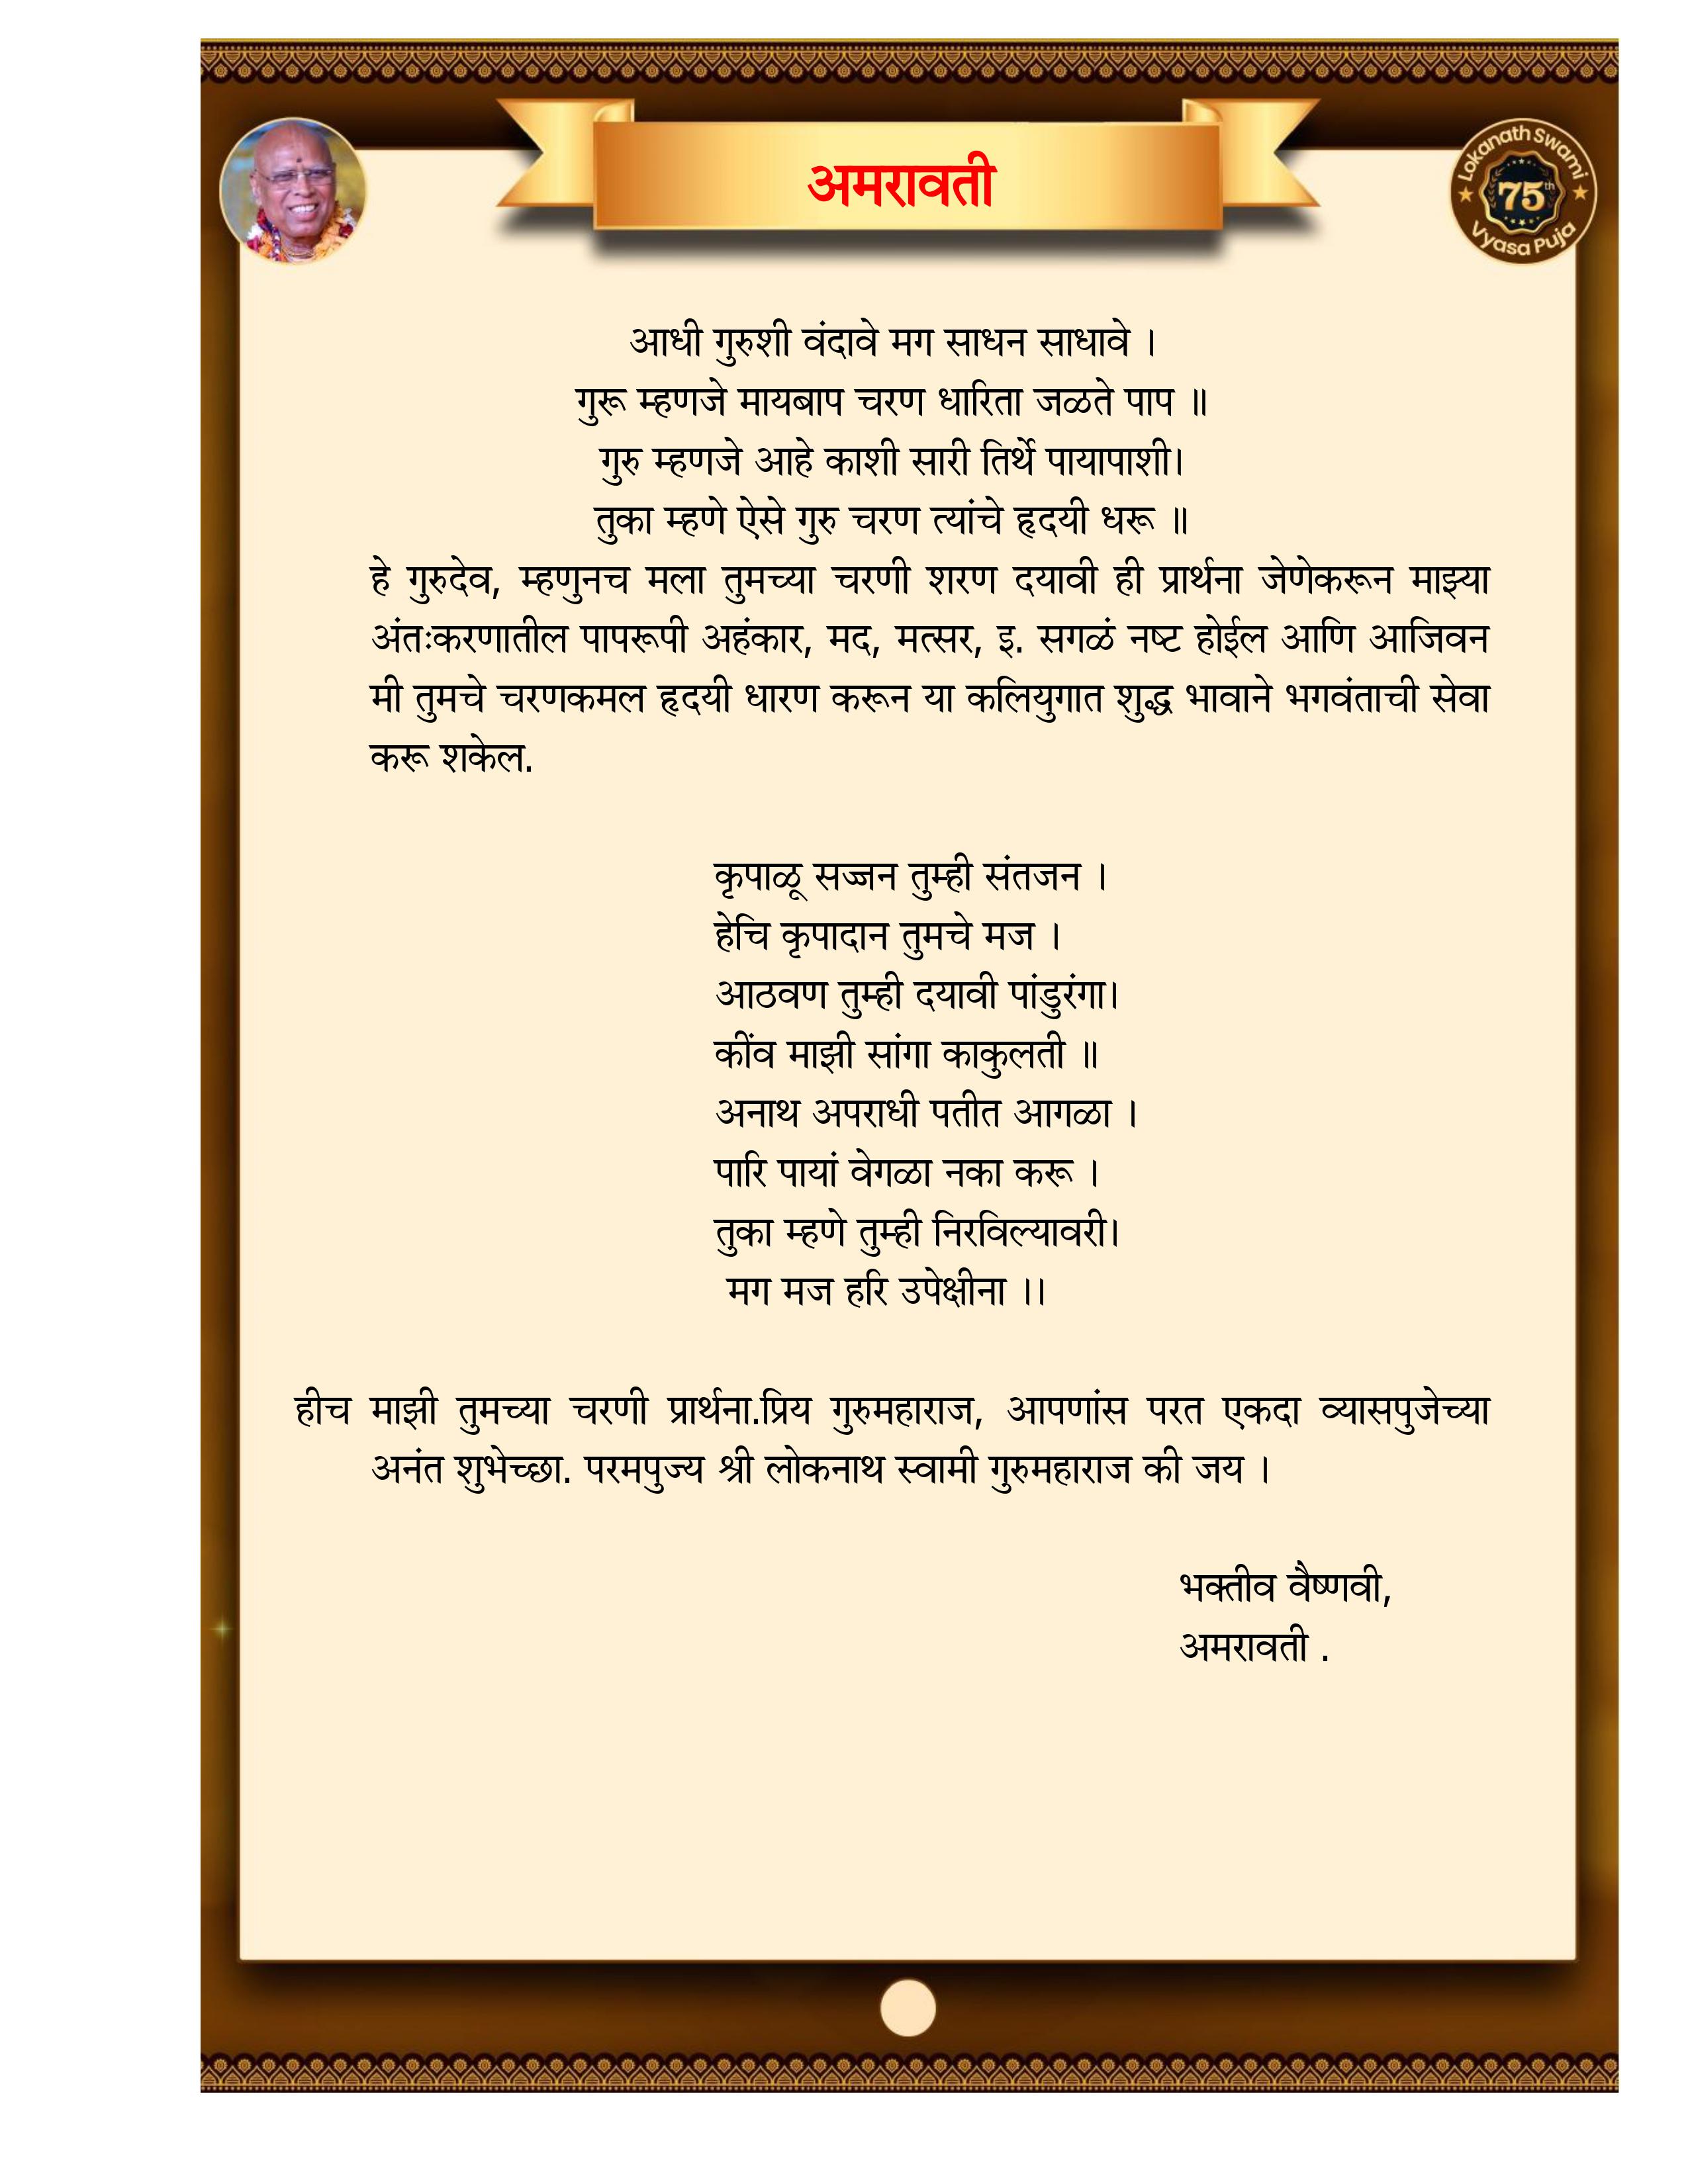 अमरावती
Lokanath Swami
75th
Vyasa Puja
आधी गुरुशी वंदावे मग साधन साधावे ।
गुरू म्हणजे मायबाप चरण धारिता जळते पाप ॥
गुरु म्हणजे आहे काशी सारी तिर्थे पायापाशी।
तुका म्हणे ऐसे गुरु चरण त्यांचे हृदयी धरू ॥
हे गुरुदेव, म्हणुनच मला तुमच्या चरणी शरण दयावी ही प्रार्थना जेणेकरून माझ्या
अंतःकरणातील पापरूपी अहंकार, मद, मत्सर, इ. सगळं नष्ट होईल आणि आजिवन
मी तुमचे चरणकमल हृदयी धारण करून या कलियुगात शुद्ध भावाने भगवंताची सेवा
करू शकेल.
कृपाळू सज्जन तुम्ही संतजन ।
हेचि कृपादान तुमचे मज ।
आठवण तुम्ही दयावी पांडुरंगा।
कींव माझी सांगा काकुलती ॥
अनाथ अपराधी पतीत आगळा ।
पारि पायां वेगळा नका करू ।
तुका म्हणे तुम्ही निरविल्यावरी।
मग मज हरि उपेक्षीना ।।
हीच माझी तुमच्या चरणी प्रार्थना.प्रिय गुरुमहाराज, आपणांस परत एकदा व्यासपुजेच्या
अनंत शुभेच्छा. परमपुज्य श्री लोकनाथ स्वामी गुरुमहाराज की जय ।
भक्तीव वैष्णवी,
अमरावती .